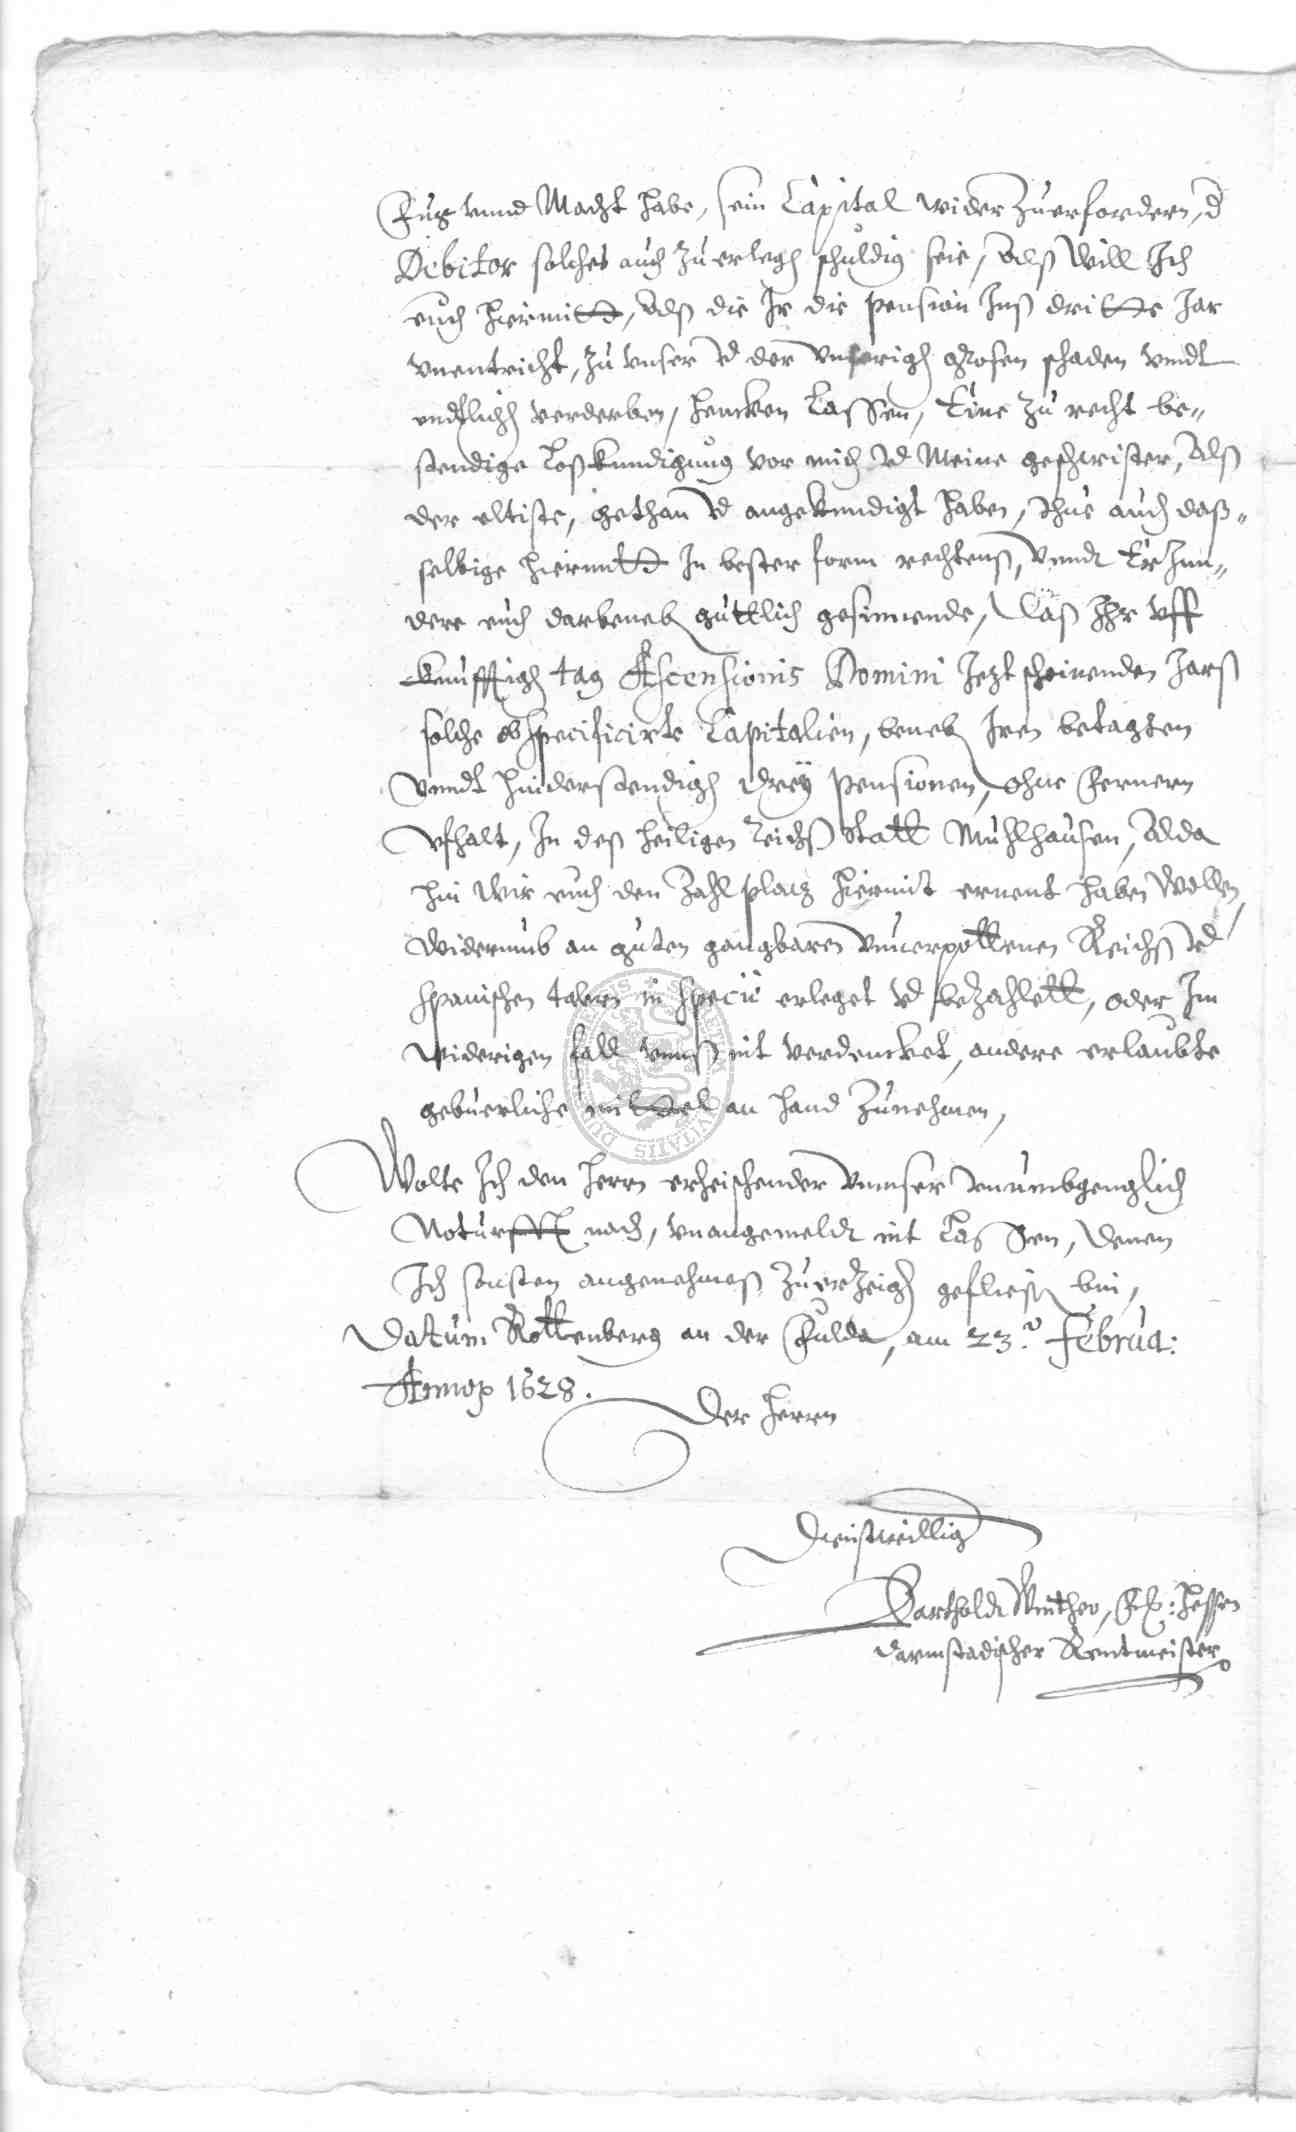 Fug vnnd Macht habe, sein Capital wider Zuerfordern, d
Debitor solches auch Zu erlegen schuldig seie, Alß Will Ich
euch hiermitt, Alß die Ir die pension Inß dritte Jar
vnentricht, Zu vnser vnd der vnserigen grosen schaden vnndt
endtlichen verderben, hencken Lassen, Eine Zu recht be-
stendige Loßkundigung vor mich vnd Meine geschwister, Alß
der eltiste, gethan vnd angekundigt haben, Thue auch daß-
selbige hiermitt In bester form rechtens, vnndt
euch darbeneben guttlich gesinnende, Das Ihr vff
kunfftigen tag Ascensionis Domini Jezt scheinenden Jarß
solche obspecificirte Capitalien, beneben Iren betagten
vnndt hinderstendigen drey pensionen, ohne Fernern
vfhalt, In deß heiligen Reichß Statt Muhlhausen, Alda
hin Wir euch den Zahlplatz hiermit ernent haben Wollen,
Widerumb an guten gangbaren Reichß vnd
Spanischen talern in Specie erleget vnd bezahlett, oder Im
widerigen fall vnnß nit verdencket, andere erlaubte
gebuerliche mittel an hand Zunehmen,
Wolte Ich den Herrn erheischender vnnser vnumbgenglich
Noturfft nach, vnangemeldt nit Lassen, denen
Ich sonsten angenehmeß Zuerzeigen gefliessen bin,
Datum Rottenberg an der Fulda, am 23. Februa:
Anno 1628.
Der Herrn
Dienstwillig
Barthold Winther, F: Hessen
Darmstadischer Rentmeister